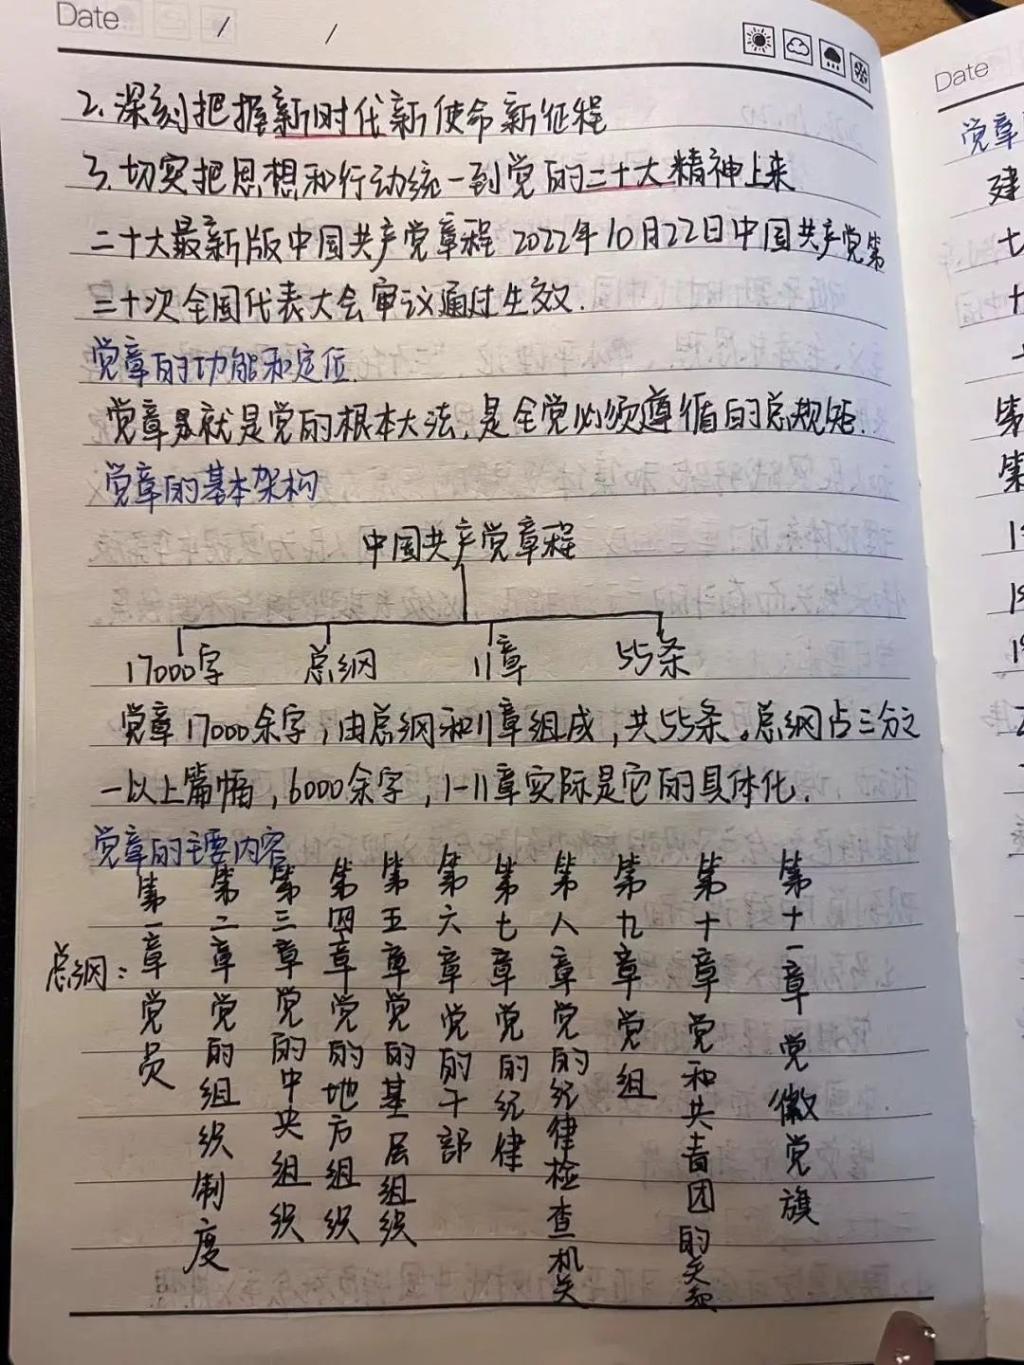 Date / /
2.深刻把握新时代新使命新征程
3.切实把思想和行动统一到党的二十大精神上来
二十大最新版中国共产党章程 2022年10月22日中国共产党第
二十次全国代表大会审议通过生效.
党章的功能和定位.
党章就是党的根本大法,是全党必须遵循的总规矩.
党章的基本架构
中国共产党章程
17000字 总纲 11章 55条
党章17000余字,由总纲和11章组成,共55条。总纲占三分之
一以上篇幅,6000余字,1-11章实际是它的具体化.
党章的主要内容
总纲:
第一章党员
第二章党的组织制度
第三章党的中央组织
第四章党的地方组织
第五章党的基层组织
第六章党的干部
第七章党的纪律
第八章党的纪律检查机关
第九章党组
第十章党和共青团的关系
第十一章党徽党旗
Date
党章
建
七
十
第
第